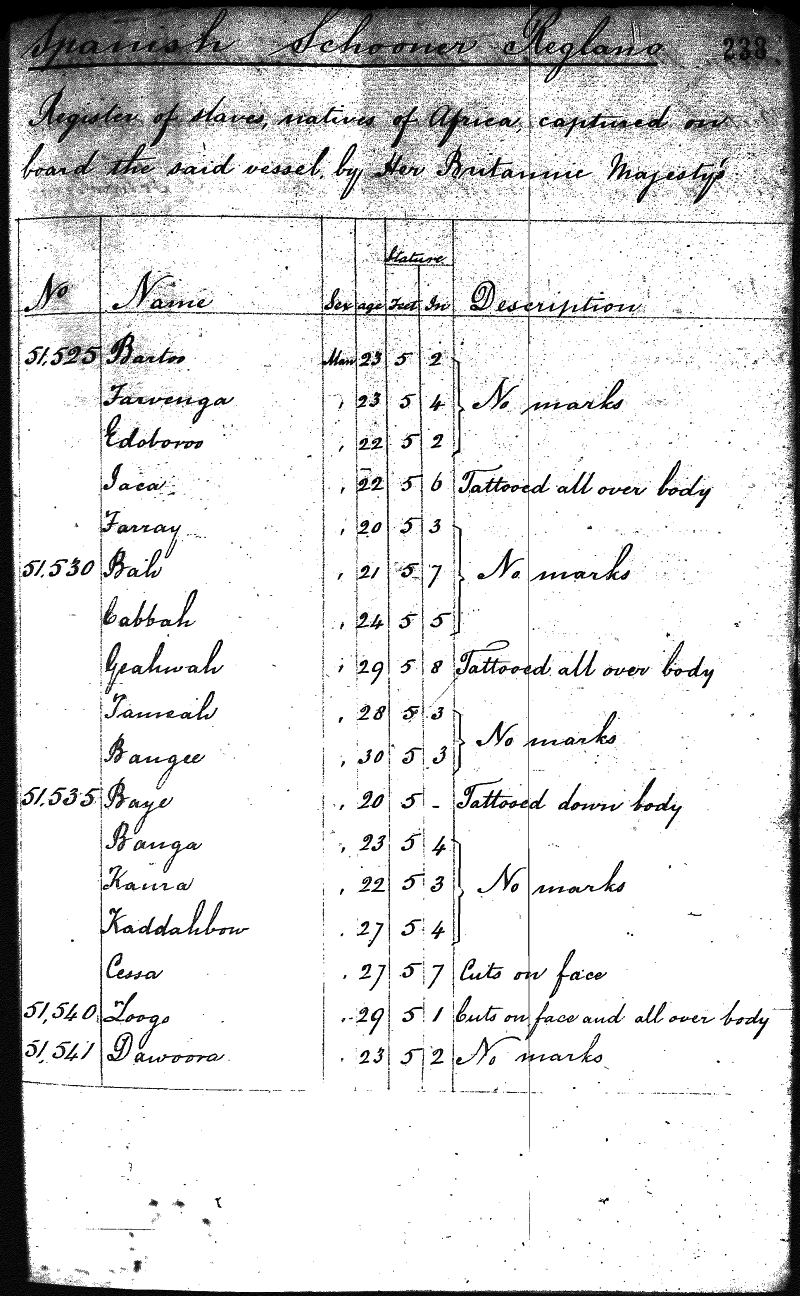 Spanish Schooner Reglano 238
Register of slaves, natives of Africa captured on
board the said vessel, by Her Britannic Majesty's
Stature
No Name Sex age Feet In Description
51,525 Bartoo Man 23 5 2
Farvenga , 23 5 4 No marks
Edoboroo , 22 5 2
Iaca , 22 5 6 Tattooed all over body
Farray , 20 5 3
51,530 Bah , 21 5 7 No marks
Cabbah , 24 5 5
Geahwah , 29 5 8 Tattooed all over body
Tameah , 28 5 3
No marks
Bangee , 30 5 3
51,535 Baye , 20 5 - Tattooed down body
Banga , 23 5 4
Kanra , 22 5 3 No marks
Kaddahbow . 27 5 4
Cessa . 27 5 7 Cuts on face
51,540 Loogo . 29 5 1 Cuts on face and all over body
51,541 Dawoora . 23 5 2 No marks